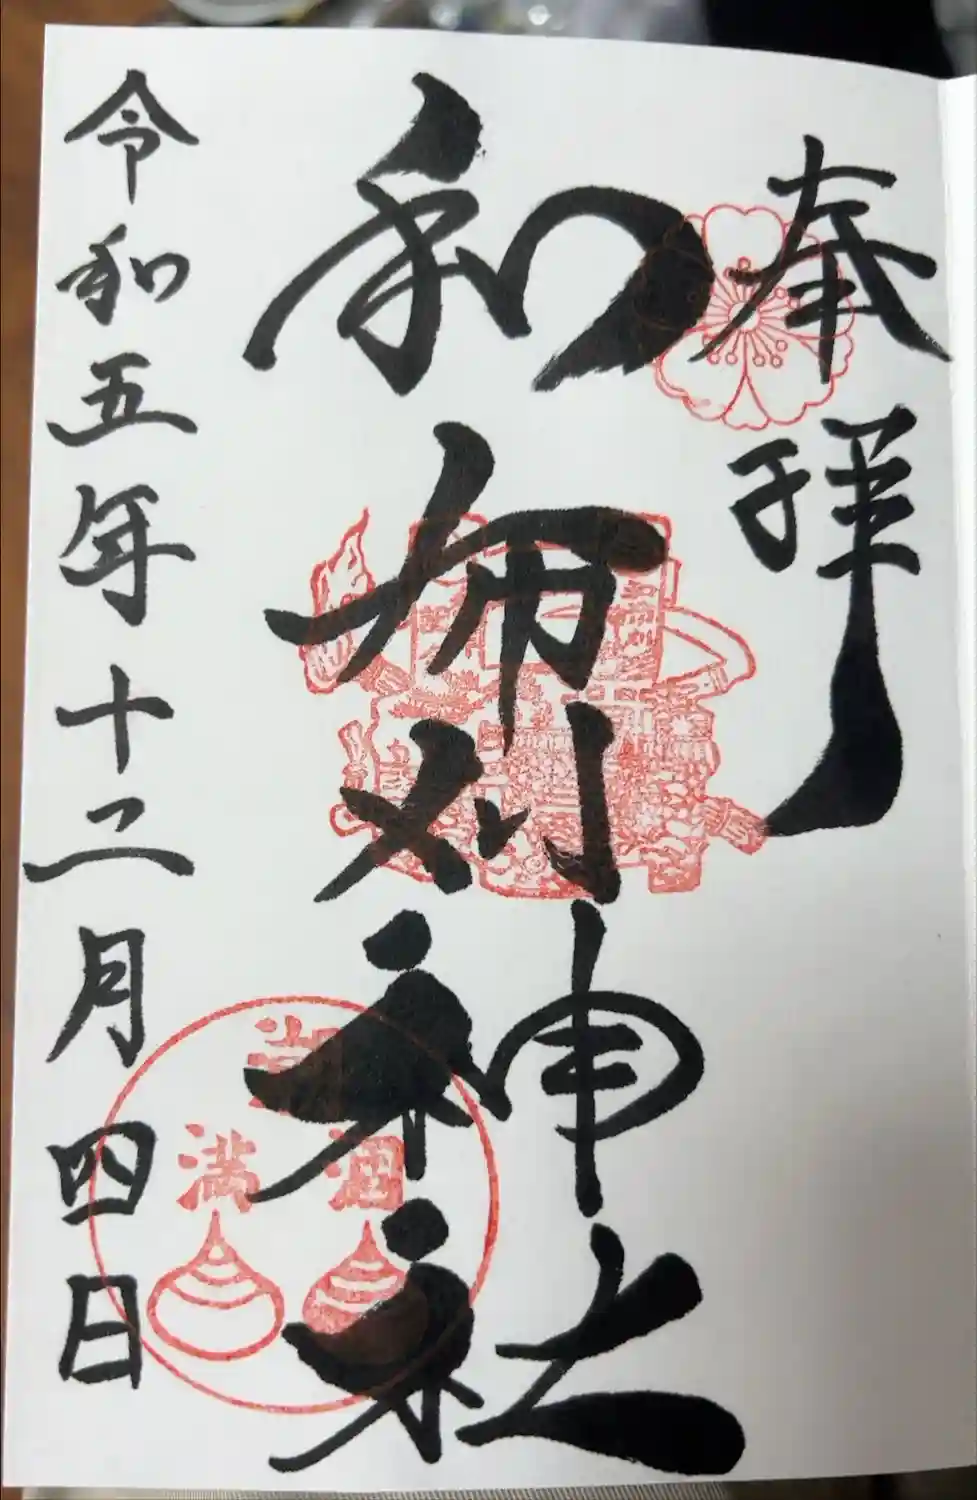 奉拝
和布刈神社
令和五年十二月四日
満
潮